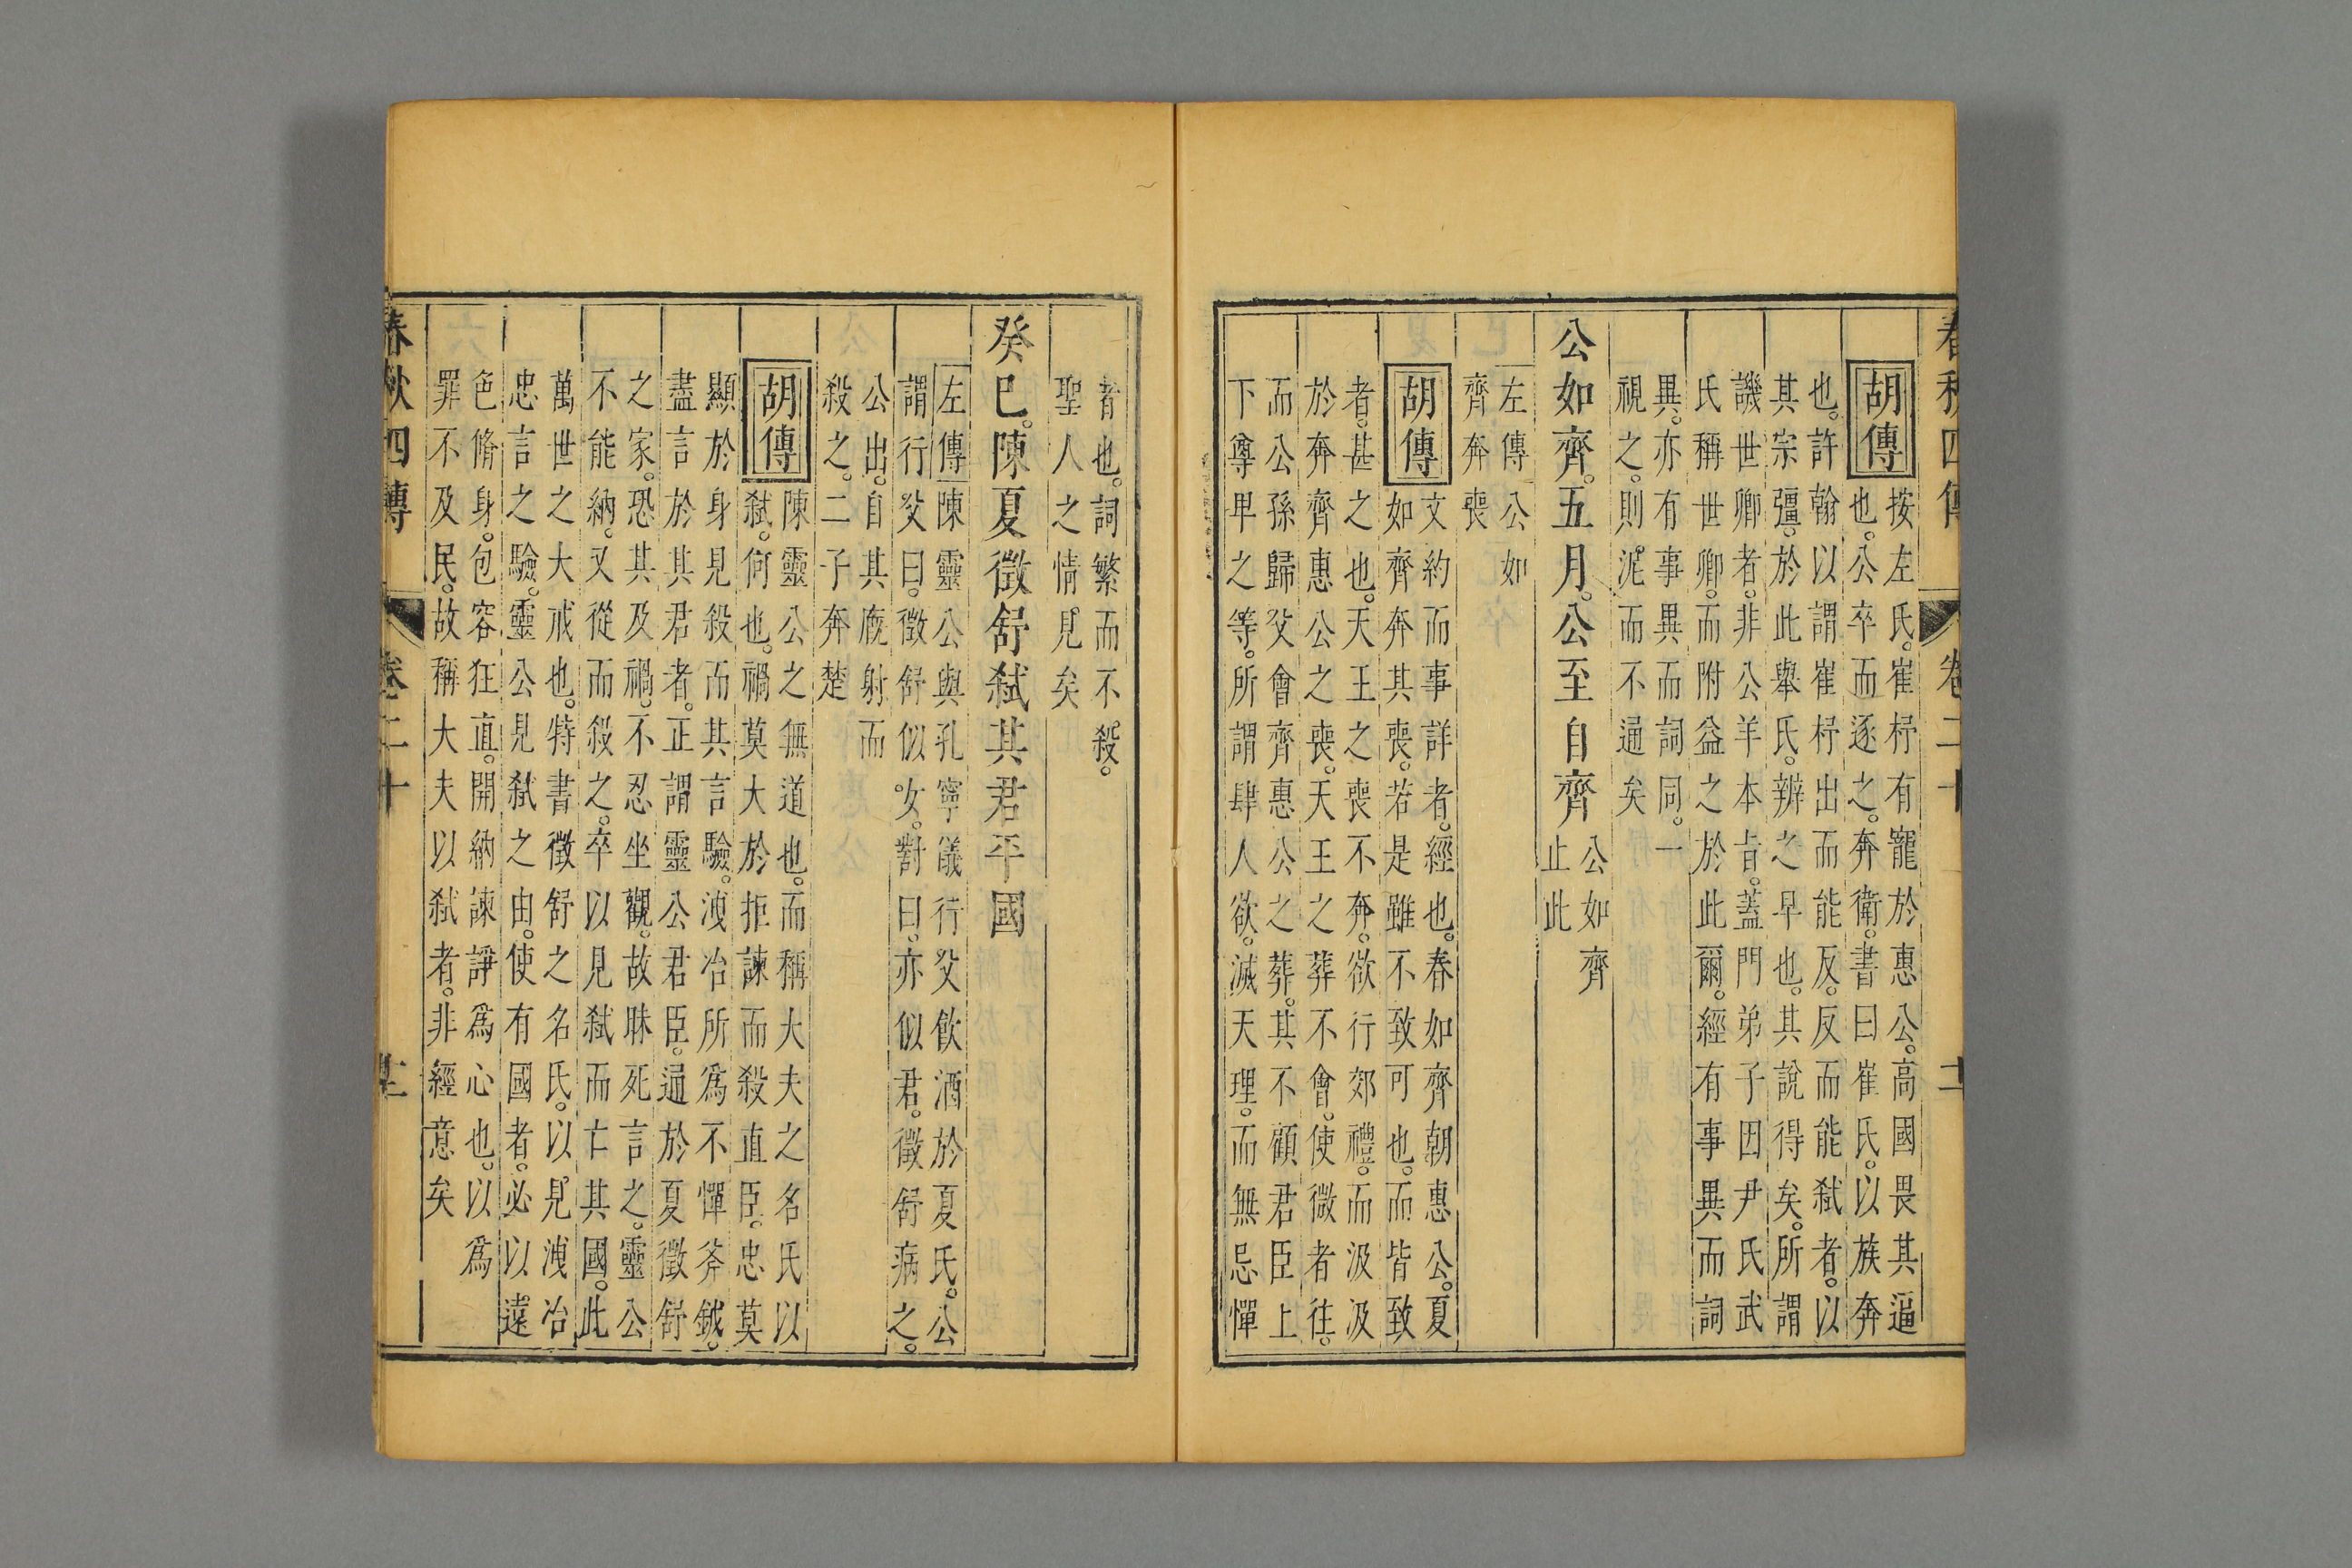 春秋四傳 卷二十 十一
胡傳 按左氏。崔杼有寵於惠公。高國畏其逼
也。公卒而逐之。奔衛。書曰崔氏。以族奔
也。許翰以謂崔杼出而能反。反而能弒者。以
其宗彊。於此舉氏。辨之早也。其說得矣。所謂
譏世卿者。非公羊本旨。蓋門弟子因尹氏武
氏稱世卿。而附益之於此爾。經有事異而詞
異。亦有事異而詞同。一
視之。則泥而不通矣
公如齊。五月。公至自齊 公如齊
止此
左傳 公如
齊奔喪
胡傳 文約而事詳者。經也。春如齊朝惠公。夏
如齊奔其喪。若是雖不致可也。而皆致
者。甚之也。天王之喪不奔。欲行郊禮。而汲汲
於奔齊惠公之喪。天王之葬不會。使微者往。
而公孫歸父會齊惠公之葬。其不顧君臣上
下尊卑之等。所謂肆人欲。滅天理。而無忌憚
者也。詞繁而不殺。
聖人之情見矣
癸巳。陳夏徵舒弒其君平國
左傳 陳靈公與孔寧儀行父飲酒於夏氏。公
謂行父曰。徵舒似女。對曰。亦似君。徵舒病之。
公出。自其廐射而
殺之。二子奔楚
胡傳 陳靈公之無道也。而稱大夫之名氏以
弒。何也。禍莫大於拒諫而殺直臣。忠莫
顯於身見殺而其言驗。洩冶所爲不憚斧鉞。
盡言於其君者。正謂靈公君臣。通於夏徵舒
之家。恐其及禍。不忍坐觀。故昧死言之。靈公
不能納。又從而殺之。卒以見弒而亡其國。此
萬世之大戒也。特書徵舒之名氏。以見洩冶
忠言之驗。靈公見弒之由。使有國者。必以遠
色脩身。包容狂直。開納諫諍爲心也。以爲
罪不及民。故稱大夫以弒者。非經意矣
春秋四傳 卷二十